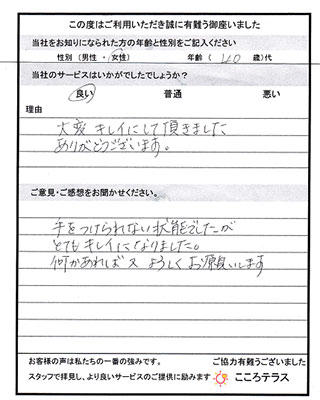 この度はご利用いただき誠に有難う御座いました
当社をお知りになられた方の年齢と性別をご記入ください
性別 (男性 ・ 女性) 年齢 ( 40 歳)代
当社のサービスはいかがでしたでしょうか?
良い 普通 悪い
理由
大変 キレイにして頂きました
ありがとうございます。
ご意見・ご感想をお聞かせください。
手をつけられない状態でしたが
とてもキレイになりました。
何かあれば又 よろしく お願いします
お客様の声は私たちの一番の強みです。 ご協力有難うございました
スタッフで拝見し、より良いサービスのご提供に励みます こころテラス